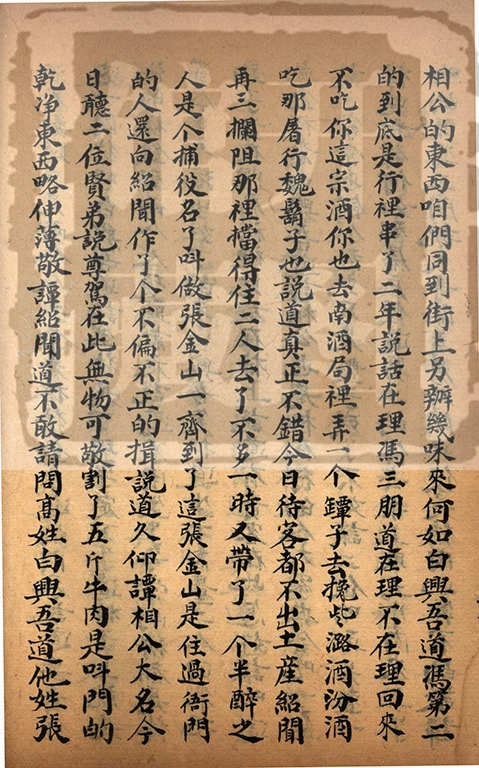 相公的東西咱們同到街上另辦幾味來何如白興吾道馮第二
的到底是行裡串了二年說話在理馮三朋道在理不在理回來
不吃你這宗酒你也去南酒局裡弄一个鐔子去攙些潞酒汾酒
吃那屠行魏鬍子也說道真正不錯今日待客都不出土産紹聞
再三攔阻那裡擋得住二人去了不多一時又帶了一个半醉之
人是个捕役名了叫做張金山一齊到了這張金山是住過衙門
的人還向紹聞作了个不偏不正的揖說道久仰譚相公大名今
日聽二位賢弟說尊駕在此無物可敬割了五斤牛肉是叫門的
乾净東西略伸薄敬譚紹聞道不敢請問髙姓白興吾道他姓張